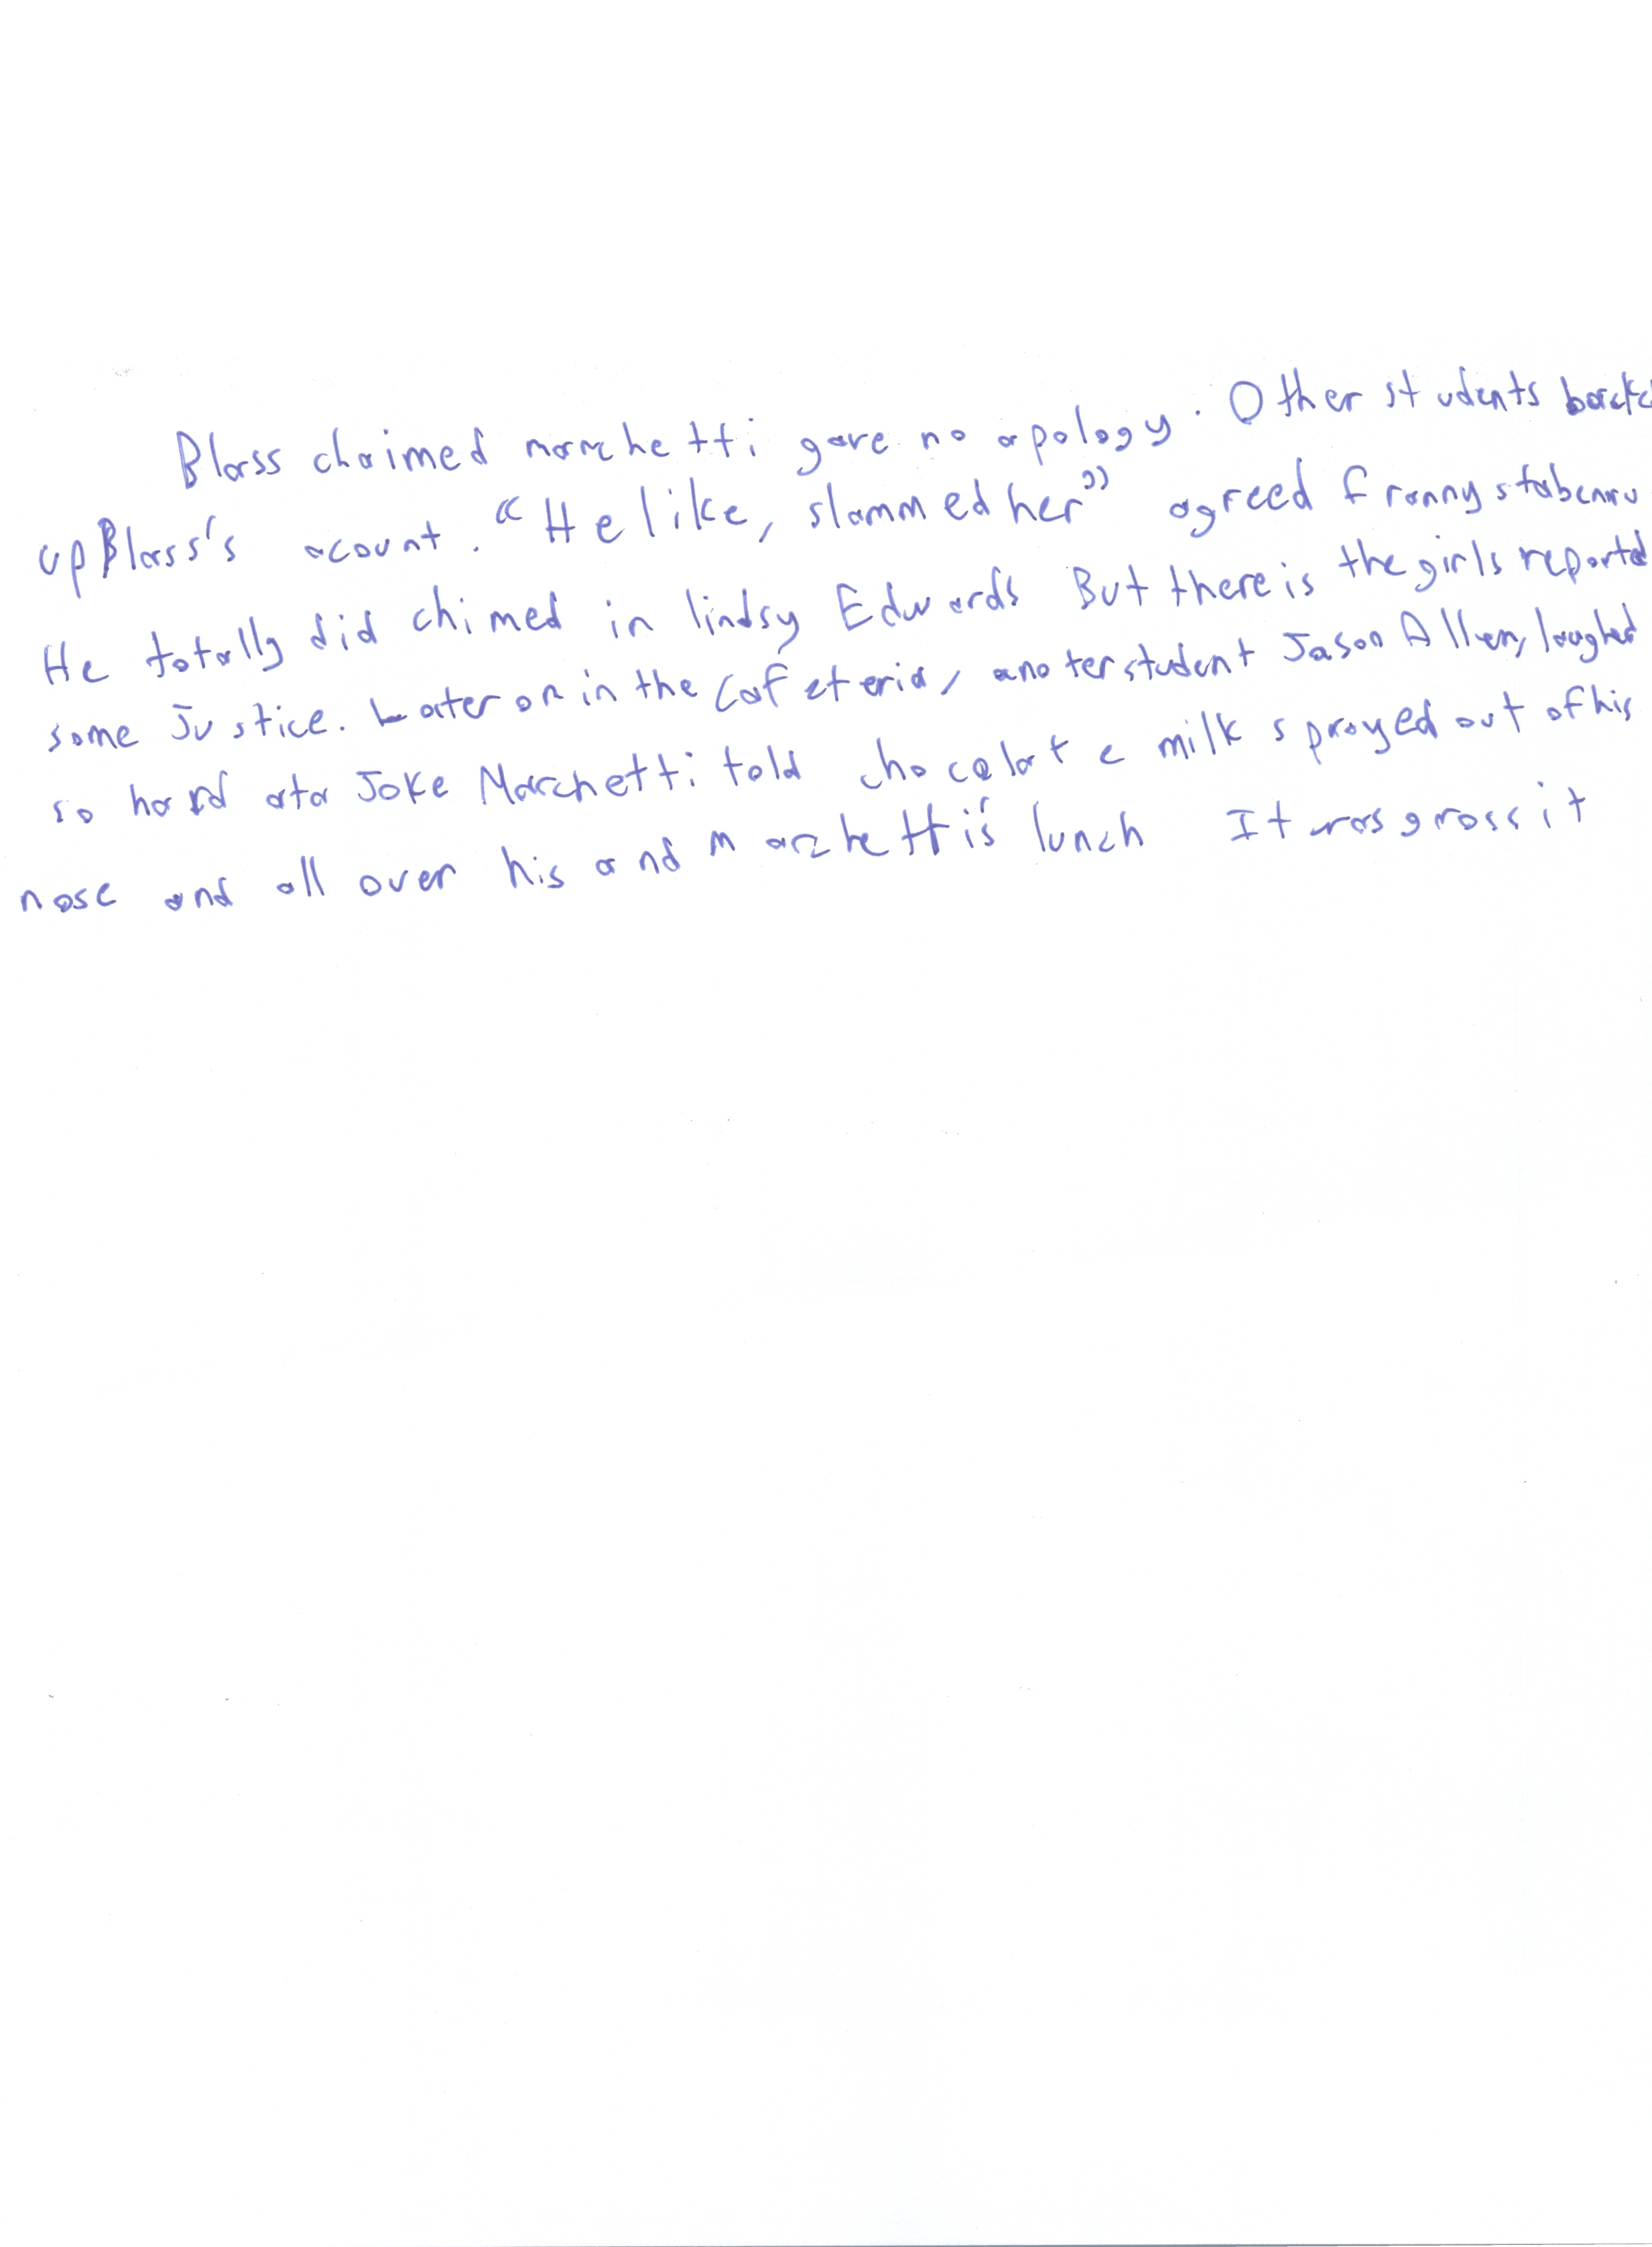 Blass claimed marchetti gave no apology. Other students back
up Blass's acount. "He like, slammed her" agreed franny stabenru
He totally did chimed in lindsy Edwards But there is the girls reported
some Justice. Later on in the Cafeteria, anoter student Jason Allen, laughed
so hard at a Joke Marchetti told chocolate milk sprayed out of his
nose and all over his and marchetti's lunch It was gross it